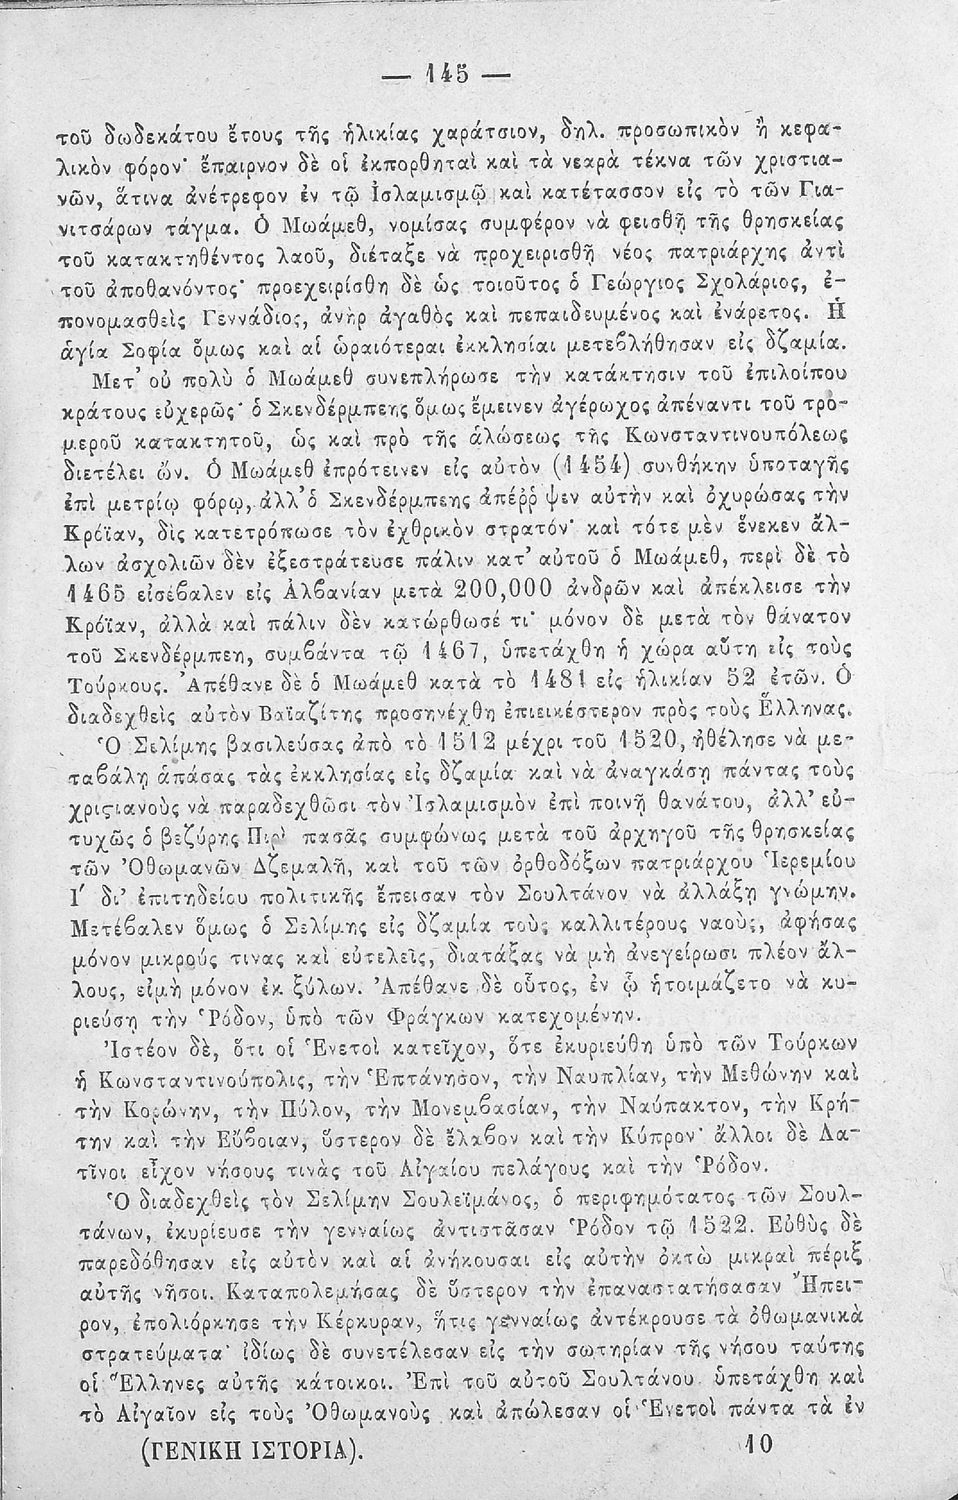 — 145 —
τοῦ δωδεκάτου ἔτους τῆς ἡλικίας χαράτσιον, δηλ. προσωπικὸν ἢ κεφα-
λικὸν φόρον· ἔπαιρνον δὲ οἱ ἐκπορθηταὶ καὶ τὰ νεαρὰ τέκνα τῶν χριστια-
νῶν, ἅτινα ἀνέτρεφον ἐν τῷ Ἰσλαμισμῷ καὶ κατέτασσον εἰς τὸ τῶν Για-
νιτσάρων τάγμα. Ὁ Μωάμεθ, νομίσας συμφέρον νὰ φεισθῇ τῆς θρησκείας
τοῦ κατακτηθέντος λαοῦ, διέταξε νὰ προχειρισθῇ νέος πατριάρχης ἀντὶ
τοῦ ἀποθανόντος· προεχειρίσθη δὲ ὡς τοιοῦτος ὁ Γεώργιος Σχολάριος, ἐ-
πονομασθεὶς Γεννάδιος, ἀνὴρ ἀγαθὸς καὶ πεπαιδευμένος καὶ ἐνάρετος. Ἡ
ἁγία Σοφία ὅμως καὶ αἱ ὡραιότεραι ἐκκλησίαι μετεβλήθησαν εἰς δζαμία.
Μετ’ οὐ πολὺ ὁ Μωάμεθ συνεπλήρωσε τὴν κατάκτησιν τοῦ ἐπιλοίπου
κράτους εὐχερῶς· ὁ Σκενδέρμπεης ὅμως ἔμεινεν ἀγέρωχος ἀπέναντι τοῦ τρο-
μεροῦ κατακτητοῦ, ὡς καὶ πρὸ τῆς ἁλώσεως τῆς Κωνσταντινουπόλεως
διετέλει ὤν. Ὁ Μωάμεθ ἐπρότεινεν εἰς αὐτὸν (1454) συνθήκην ὑποταγῆς
ἐπὶ μετρίῳ φόρῳ, ἀλλ’ ὁ Σκενδέρμπεης ἀπέῤῥιψεν αὐτὴν καὶ ὀχυρώσας τὴν
Κρόϊαν, δὶς κατετρόπωσε τὸν ἐχθρικὸν στρατόν· καὶ τότε μὲν ἕνεκεν ἄλ-
λων ἀσχολιῶν δὲν ἐξεστράτευσε πάλιν κατ’ αὐτοῦ ὁ Μωάμεθ, περὶ δὲ τὸ
1465 εἰσέβαλεν εἰς Ἀλβανίαν μετὰ 200,000 ἀνδρῶν καὶ ἀπέκλεισε τὴν
Κρόϊαν, ἀλλὰ καὶ πάλιν δὲν κατώρθωσέ τι· μόνον δὲ μετὰ τὸν θάνατον
τοῦ Σκενδέρμπεη, συμβάντα τῷ 1467, ὑπετάχθη ἡ χώρα αὕτη εἰς τοὺς
Τούρκους. Ἀπέθανε δὲ ὁ Μωάμεθ κατὰ τὸ 1481 εἰς ἡλικίαν 52 ἐτῶν. Ὁ
διαδεχθεὶς αὐτὸν Βαϊαζίτης προσηνέχθη ἐπιεικέστερον πρὸς τοὺς Ἕλληνας.
Ὁ Σελίμης βασιλεύσας ἀπὸ τὸ 1512 μέχρι τοῦ 1520, ἠθέλησε νὰ με-
ταβάλῃ ἁπάσας τὰς ἐκκλησίας εἰς δζαμία καὶ νὰ ἀναγκάσῃ πάντας τοὺς
χριϛιανοὺς νὰ παραδεχθῶσι τὸν Ἰσλαμισμὸν ἐπὶ ποινῇ θανάτου, ἀλλ’ εὐ-
τυχῶς ὁ βεζύρης Πιρὶ πασᾶς συμφώνως μετὰ τοῦ ἀρχηγοῦ τῆς θρησκείας
τῶν Ὀθωμανῶν Δζεμαλῆ, καὶ τοῦ τῶν ὀρθοδόξων πατριάρχου Ἱερεμίου
Ι΄ δι’ ἐπιτηδείου πολιτικῆς ἔπεισαν τὸν Σουλτάνον νὰ ἀλλάξῃ γνώμην.
Μετέβαλεν ὅμως ὁ Σελίμης εἰς δζαμία τοὺς καλλιτέρους ναοὺς, ἀφήσας
μόνον μικρούς τινας καὶ εὐτελεῖς, διατάξας νὰ μὴ ἀνεγείρωσι πλέον ἄλ-
λους, εἰμὴ μόνον ἐκ ξύλων. Ἀπέθανε δὲ οὗτος, ἐν ᾧ ἡτοιμάζετο νὰ κυ-
ριεύσῃ τὴν Ῥόδον, ὑπὸ τῶν Φράγκων κατεχομένην.
Ἰστέον δὲ, ὅτι οἱ Ἑνετοὶ κατεῖχον, ὅτε ἐκυριεύθη ὑπὸ τῶν Τούρκων
ἡ Κωνσταντινούπολις, τὴν Ἑπτάνησον, τὴν Ναυπλίαν, τὴν Μεθώνην καὶ
τὴν Κορώνην, τὴν Πύλον, τὴν Μονεμβασίαν, τὴν Ναύπακτον, τὴν Κρή-
την καὶ τὴν Εὔβοιαν, ὕστερον δὲ ἔλαβον καὶ τὴν Κύπρον· ἄλλοι δὲ Λα-
τῖνοι εἶχον νήσους τινὰς τοῦ Αἰγαίου πελάγους καὶ τὴν Ῥόδον.
Ὁ διαδεχθεὶς τὸν Σελίμην Σουλεϊμάνος, ὁ περιφημότατος τῶν Σουλ-
τάνων, ἐκυρίευσε τὴν γενναίως ἀντιστᾶσαν Ῥόδον τῷ 1522. Εὐθὺς δὲ
παρεδόθησαν εἰς αὐτὸν καὶ αἱ ἀνήκουσαι εἰς αὐτὴν ὀκτὼ μικραὶ πέριξ
αὐτῆς νῆσοι. Καταπολεμήσας δὲ ὕστερον τὴν ἐπαναστατήσασαν Ἤπει-
ρον, ἐπολιόρκησε τὴν Κέρκυραν, ἥτις γενναίως ἀντέκρουσε τὰ ὀθωμανικὰ
στρατεύματα· ἰδίως δὲ συνετέλεσαν εἰς τὴν σωτηρίαν τῆς νήσου ταύτης
οἱ Ἕλληνες αὐτῆς κάτοικοι. Ἐπὶ τοῦ αὐτοῦ Σουλτάνου ὑπετάχθη καὶ
τὸ Αἰγαῖον εἰς τοὺς Ὀθωμανοὺς καὶ ἀπώλεσαν οἱ Ἑνετοὶ πάντα τὰ ἐν
(ΓΕΝΙΚΗ ΙΣΤΟΡΙΑ). 10